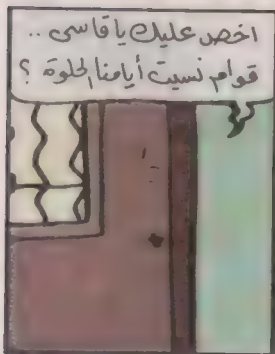 اخص عليك يا قاسى ..
قوام نسيت أيامنا الحلوة ؟